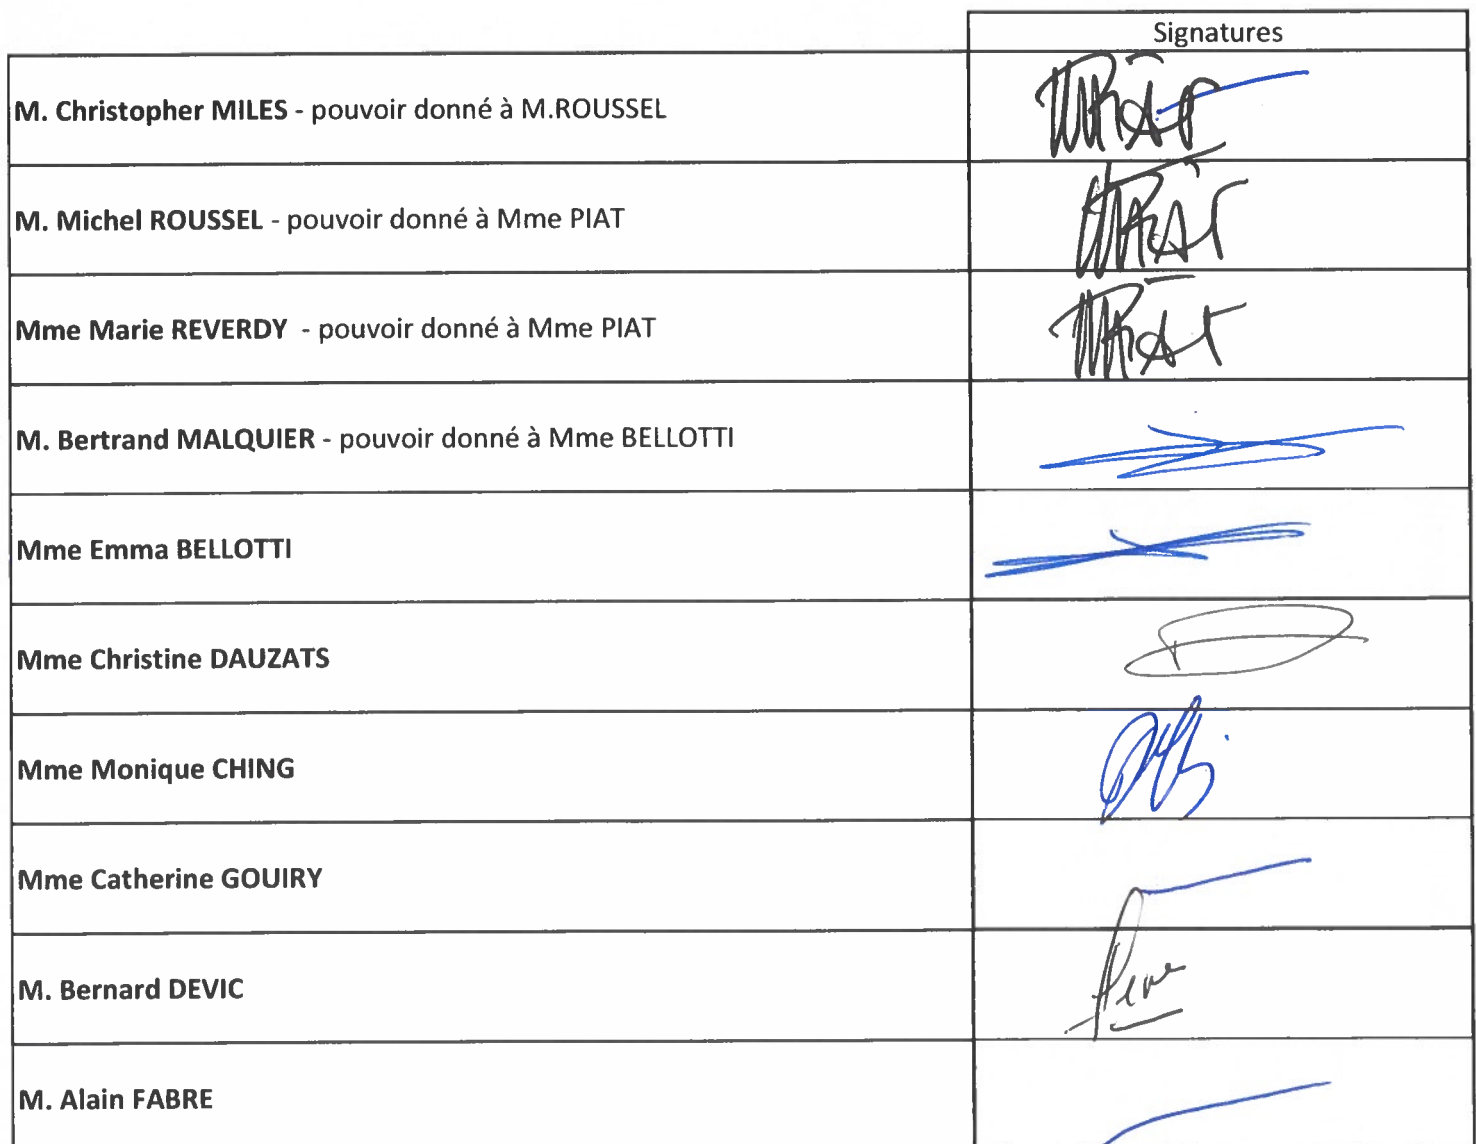 Signatures
M. Christopher MILES - pouvoir donné à M.ROUSSEL
M. Michel ROUSSEL - pouvoir donné à Mme PIAT
Mme Marie REVERDY - pouvoir donné à Mme PIAT
M. Bertrand MALQUIER - pouvoir donné à Mme BELLOTTI
Mme Emma BELLOTTI
Mme Christine DAUZATS
Mme Monique CHING
Mme Catherine GOUIRY
M. Bernard DEVIC
M. Alain FABRE